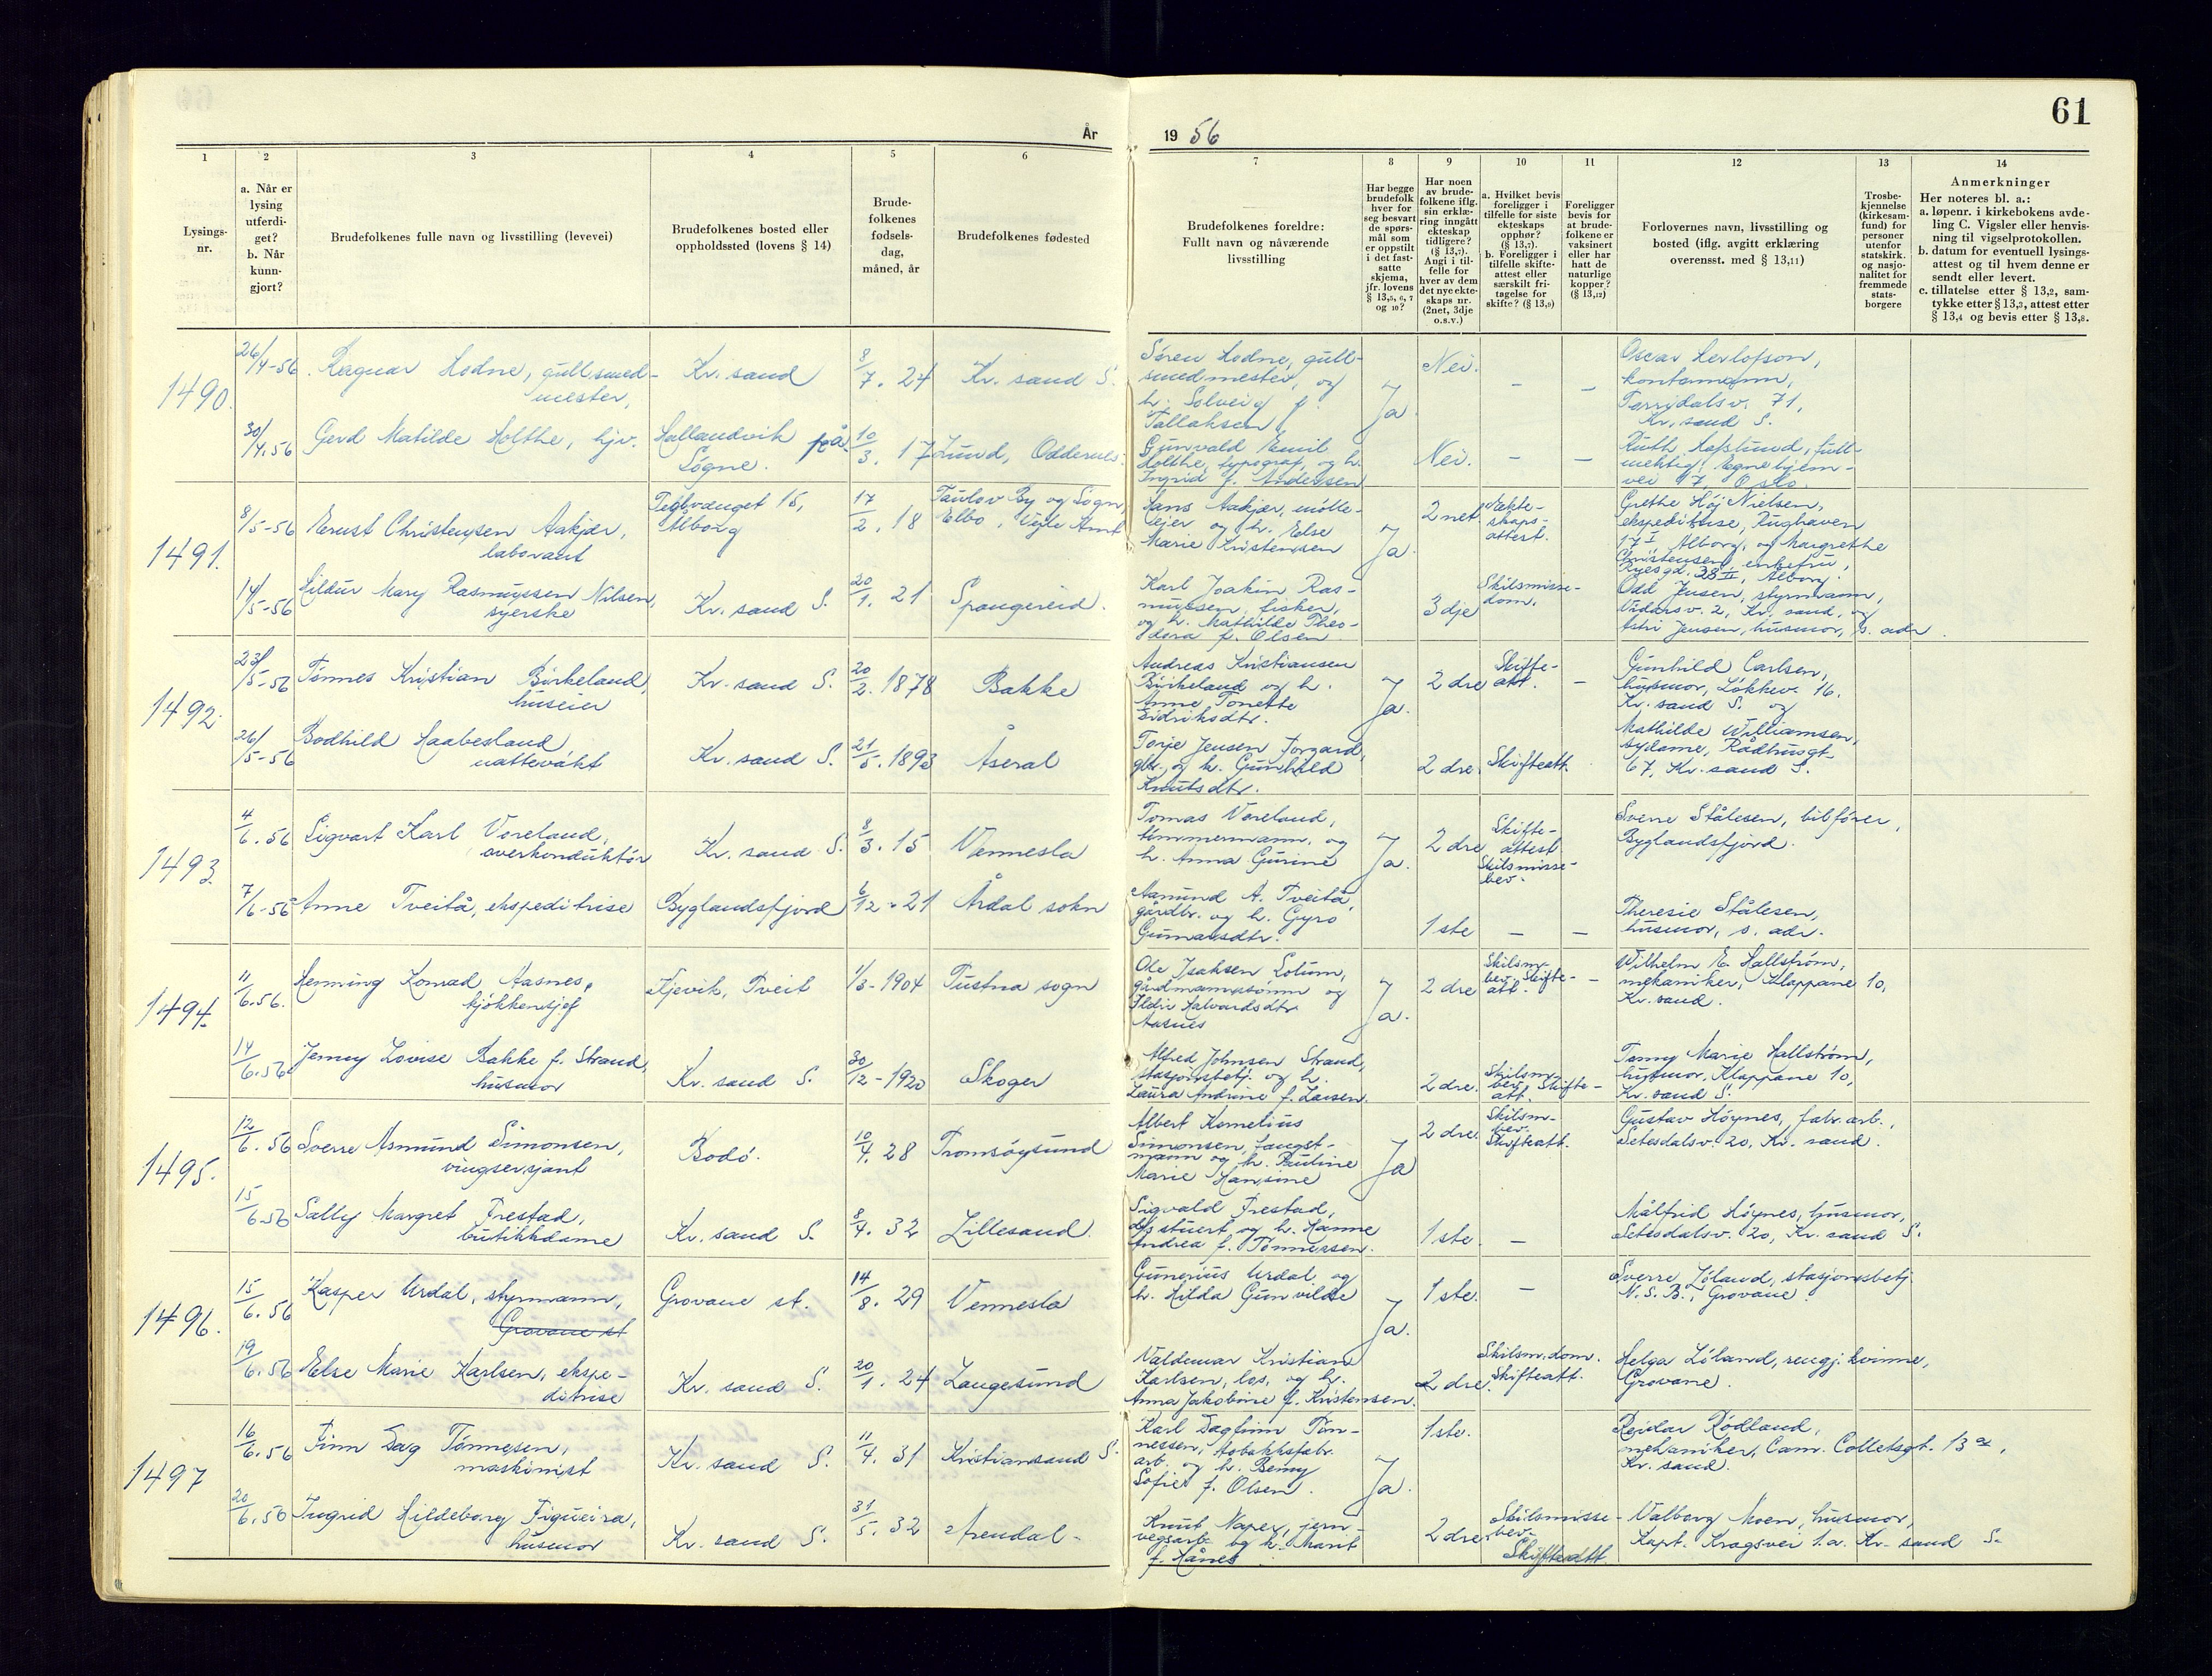 61
År
19 56
1
2
3
4
5
6
7
8
9
10
11
12
13
14
Lysings-
nr.
a. Når er
lysing
utferdi-
get?
b. Når
kunn-
gjort?
Brudefolkenes fulle navn og livsstilling (levevei)
Brudefolkenes bosted eller
oppholdssted (lovens § 14)
Brude-
folkenes
fødsels-
dag,
måned, år
Brudefolkenes fødested
Brudefolkenes foreldre:
Fullt navn og nåværende
livsstilling
Har begge
brudefolk
hver for
seg besvart
de spørs-
mål som
er oppstilt
i det fast-
satte
skjema,
jfr. lovens
§ 13,5, 6, 7
og 10?
Har noen
av brude-
folkene iflg.
sin erklæ-
ring inngått
ekteskap
tidligere?
(§ 13,7).
Angi i til-
felle for
hver av dem
det nye ekte-
skaps nr.
(2net, 3dje
o.s.v.)
a. Hvilket bevis
foreligger i
tilfelle for siste
ekteskaps
opphør?
(§ 13,7).
b. Foreligger i
tilfelle skifte-
attest eller
særskilt fri-
tagelse for
skifte? (§ 13,9)
Foreligger
bevis for
at brude-
folkene er
vaksinert
eller har
hatt de
naturlige
kopper?
(§ 13,12)
Forlovernes navn, livsstilling og
bosted (iflg. avgitt erklæring
overensst. med § 13,11)
Trosbe-
kjennelse
(kirkesam-
fund) for
personer
utenfor
statskirk.
og nasjo-
nalitet for
fremmede
stats-
borgere
Anmerkninger
Her noteres bl. a.:
a. løpenr. i kirkebokens avde-
ling C. Vigsler eller henvis-
ning til vigselprotokollen.
b. datum for eventuell lysings-
attest og til hvem denne er
sendt eller levert.
c. tillatelse etter § 13,2, sam-
tykke etter § 13,3, attest etter
§ 13,4 og bevis etter § 13,8.
1490.
26/4-56. Ragnar Hodne, gullsmed-
mester,
Kr. sand
8/7. 24
Kr. sand S.
Søren Hodne, gull-
smedmester, og
h. Solveig f.
Tallaksen
Ja.
Nei.
-
-
Oscar Herlofson,
kontormann,
Torridalsv. 71,
Kr. sand S.
30/4.56 Gerd Matilde Holthe, hjv.
Hallandvik på
Søgne.
10/3. 17
Lund, Oddernes.
Gunvald Emil
Holthe, typograf, og h.
Ingrid f. Andersen
Nei.
-
-
Ruth Aaslund, full-
mektig, Egnehjem-
vei 17, Oslo.
1491.
8/5-56 Ernst Christensen Aakjær,
laborant
Teglvænget 15,
Ålborg
17/2. 18
Taulov By og Sogn,
Elbo, Vejle Amt
Hans Aakjær, mølle-
ejer og h. Else
Marie Kristensen
Ja.
2net
Ekte-
skaps-
attest.
Grethe Høj Nielsen,
ekspeditrise, Rughaven
17 I, Alborg, og Margrethe
Christensen, enkefru,
Ryesgd. 38 II, Alborg.
14/5-56 Hildur Mary Rasmussen Nilsen,
syerske
Kr. sand S.
20/1. 21
Spangereid.
Karl Joakim Ras-
mussen, fisker,
og h. Mathilde Theo-
dora f. Olsen.
3dje
Skilsmisse-
dom.
Odd Jensen, styrmann,
Vidarsv. 2, Kr. sand, og
Astri Jensen, husmor, s. adr.
1492.
23/5-56 Tønnes Kristian Birkeland,
huseier
Kr. sand S.
20/2. 1878
Bakke
Andreas Kristiansen
Birkeland og h.
Anne Tonette
Eidriksdtr.
Ja.
2 dre
Skifte-
att.
-
Gunhild Carlsen,
husmor, Løkkev. 16.
Kr. sand S. og
26/5-56 Bodhild Haabesland
nattevakt
Kr. sand S.
21/5. 1893
Åseral
Torje Jensen Torgard,
gbr. og h. Gunhild
Knutsdtr.
2 dre.
Skifteatt.
Mathilde Williamsen,
sydame, Rådhusgt.
67, Kr. sand S.
1493.
4/6.56 Sigvart Karl Voreland,
overkonduktør
Kr. sand S.
8/3. 15
Vennesla
Tomas Voreland,
tømmermann, og
h. Anna Gurine
Ja.
2 dre
Skifte-
attest.
Skilsmisse-
bev.
Sverre Stålesen, bilfører,
Byglandsfjord.
7/6-56 Anne Tveitå, ekspeditrise
Byglandsfjord
6/12 - 21
Årdal sokn
Aamund A. Tveitå,
gårdbr. og h. Gyro
Gunnarsdtr.
1ste
-
-
Theresie Stålesen,
husmor, s. adr.
1494.
11/6.56. Henning Konrad Aasnes,
kjøkkensjef
Kjevik, Tveit
1/3-1904
Tustna sogn
Ole Isaksen Solum,
gårdmannssønn og
Ildri Halvardsdtr.
Aasnes
Ja.
2 dre
Skilsm-
bev. Skifte-
att.
-
Wilhelm E. Hallstrøm,
mekaniker, Klappane 10,
Kr. sand.
14/6.56 Jenny Lovise Bakke f. Strand,
husmor
Kr. sand S.
30/12-1920
Skoger
Alfred Johnsen Strand,
stasjonsbetj. og h.
Laura Andrine f. Larsen.
2 dre.
Skilsm.
bev. Skifte-
att.
-
Tomy Marie Hallstrøm,
husmor, Klappane 10,
Kr. sand S.
1495.
12/6.56 Sverre Asmund Simonsen,
vingsersjant
Bodø.
10/4. 28
Tromsøysund
Albert Kornelius
Simonsen, fangst-
mann og h. Pauline
Marie Hansine
Ja
2 dre.
Skilsm-
bev.
Skifteatt.
Gustav Høynes, fabr.arb.,
Setesdalsv. 20, Kr. sand.
15/6.56 Sally Margret Frestad,
butikkdame
Kr. sand S.
8/4. 32
Lillesand.
Sigvald Frestad,
d/s stuert og h. Hanne
Andrea f. Tønnessen.
1ste.
-
Målfrid Høynes, husmor,
Setesdalsv. 20, Kr. sand S.
1496.
15/6.56 Kasper Urdal, styrmann,
Grovane st
Grovane st.
14/8. 29
Vennesla
Gunerius Urdal og
h. Hilda Gunvilde
Ja.
1ste.
-
Sverre Løland, stasjonsbetj.
N.S.B., Grovane.
19/6.56 Else Marie Karlsen, ekspe-
ditrise
Kr. sand S.
20/1. 24
Langesund
Valdemar Kristian
Karlsen, los, og h.
Anna Jakobine f. Kristensen.
2 dre.
Skilsm. dom.
Skifteatt.
Helga Løland, rengj. kvinne,
Grovane.
1497
16/6.56 Finn Dag Tønnesen,
maskinist
Kr. sand S.
11/4. 31
Kristiansand S.
Karl Dagfinn Tøn-
nessen, tobakksfabr.
arb. og h. Benny
Sofie f. Olsen.
Ja.
1ste.
Reidar Rødland,
mekaniker, Cam. Colletsgt. 13 a,
Kr. sand.
20/6.56 Ingrid Hildeborg Figueira,
husmor
Kr. sand S.
31/5. 32
Arendal-
Knut Naper, jern-
vegsarb. og h. Marit
f. Hånes
2 dre
Skilsmisse-
bev-
Skifteatt
Valborg Moen, husmor,
Kapt. Kragsvei 1.a. Kr. sand S.